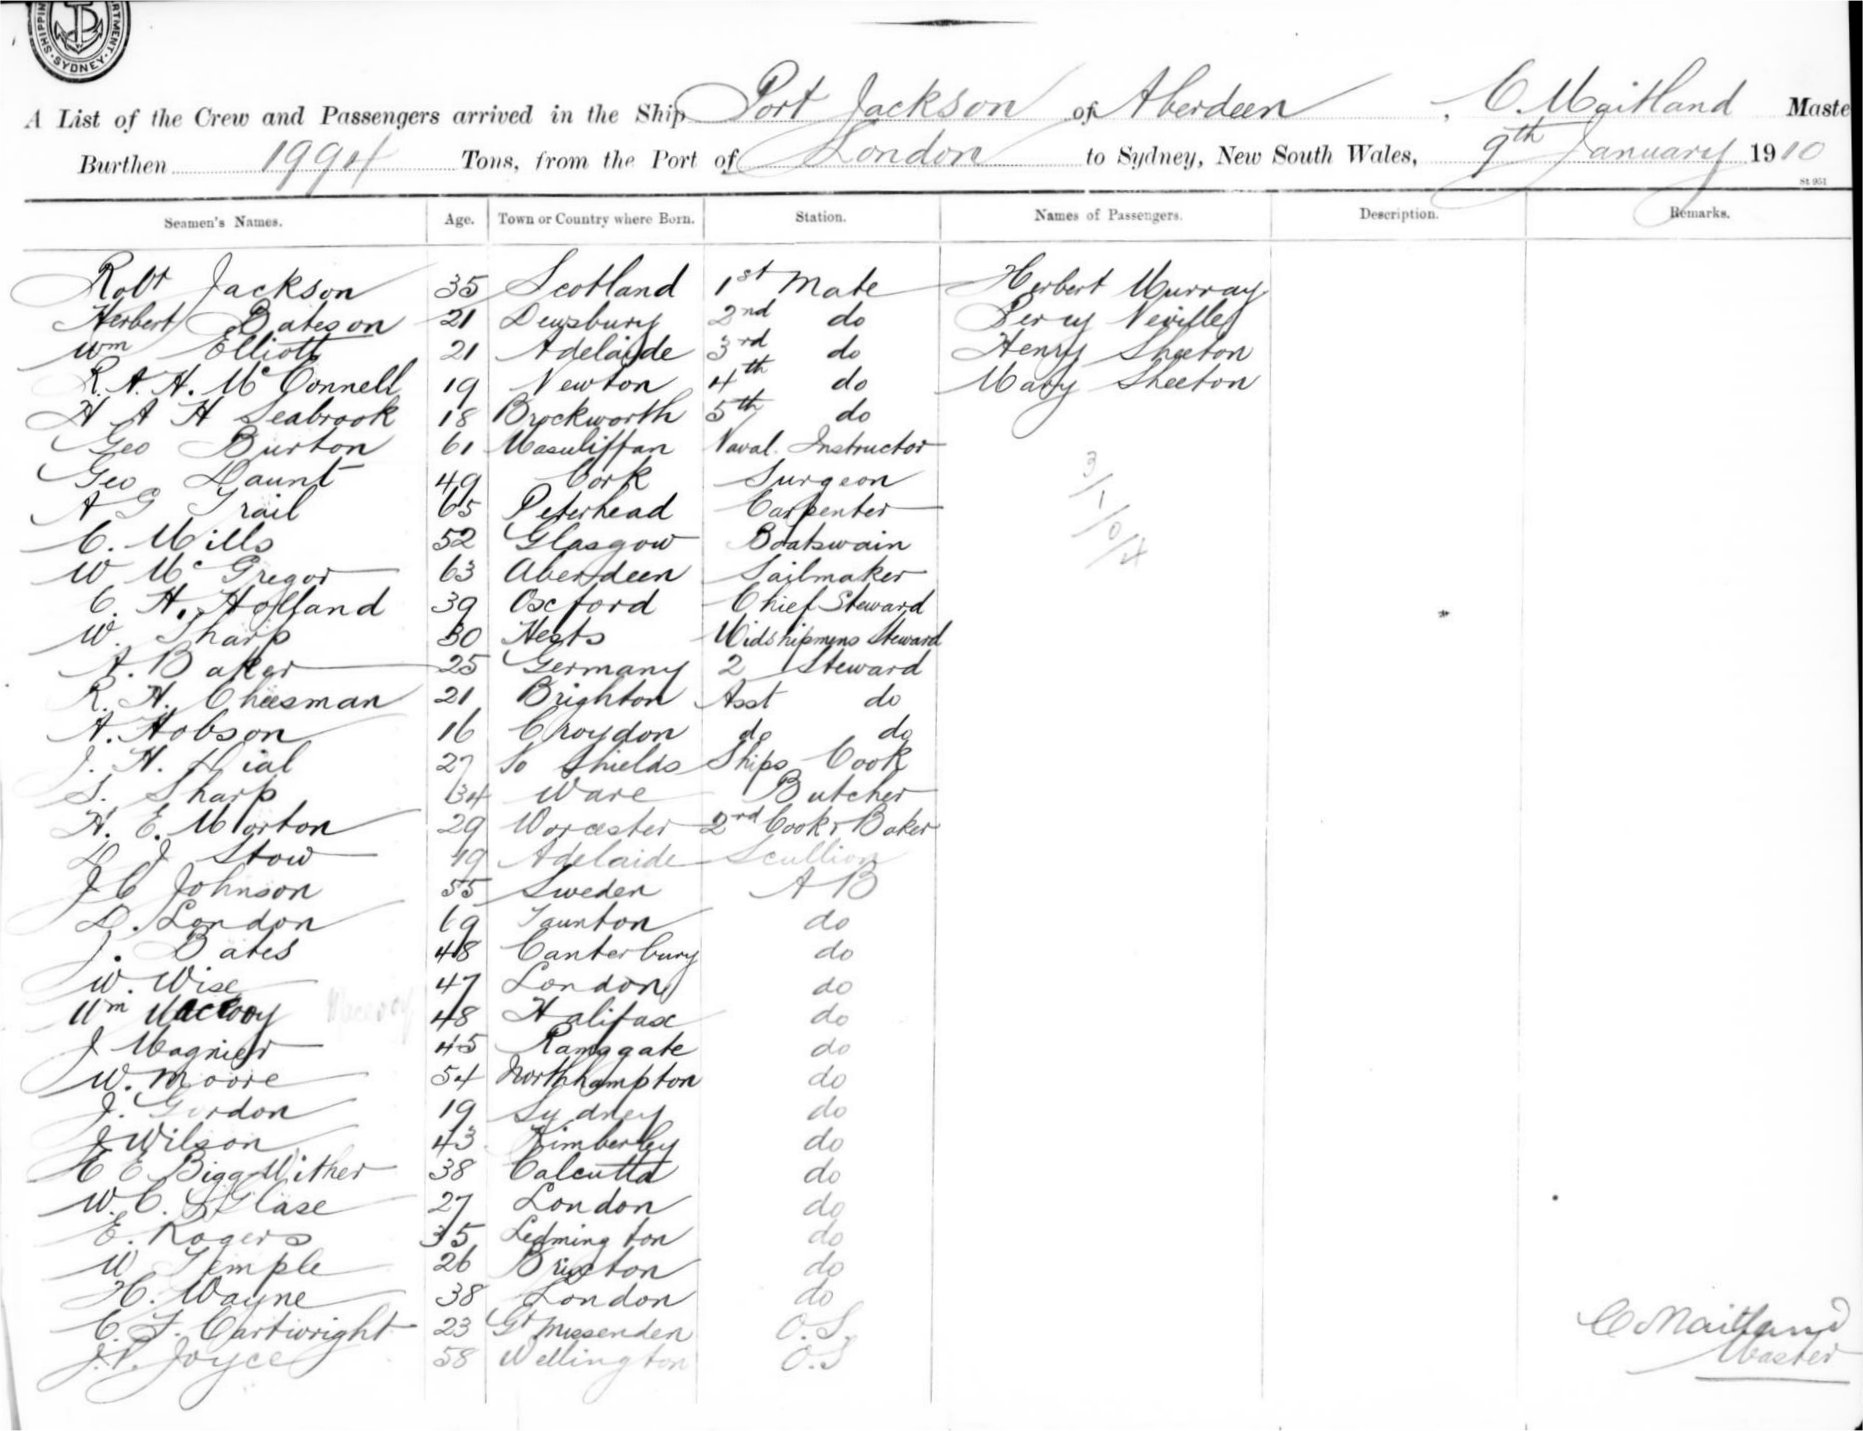 SHIPPING DEPARTMENT. SYDNEY.
A List of the Crew and Passengers arrived in the Ship Port Jackson of Aberdeen, C. Maitland Maste
Burthen 1994 Tons, from the Port of London to Sydney, New South Wales, 9th January 1910
St 951
Seamen's Names. Age. Town or Country where Born. Station. Names of Passengers. Description. Remarks.
Robt Jackson 35 Scotland 1st Mate Herbert Murray
Herbert Bateson 21 Dewsbury 2nd do Percy Neville
Wm Elliott 21 Adelaide 3rd do Henry Sheeton
R. A. H. McConnell 19 Newton 4th do Mary Sheeton
H A H Seabrook 18 Brockworth 5th do
Geo Burton 61 Naval Instructor
Geo Daunt 49 Cork Surgeon
A G Trail 65 Peterhead Carpenter
C. Mills 52 Glasgow Boatswain
3/1/0/4
W McGregor 63 Aberdeen Sailmaker
C. H. Holland 39 Oxford Chief Steward
W. Sharp 30 Herts Midshipmens Steward
A. Baker 25 Germany 2 Steward
R. H. Cheesman 21 Brighton Asst do
A. Hobson 16 Croydon do do
J. H. Dial 27 So Shields Ships Cook
S. Sharp 34 Ware Butcher
H. E. Morton 29 Worcester 2rd Cook & Baker
D J Stow 19 Adelaide Scullion
J C Johnson 55 Sweden A B
D. London 19 Taunton do
J. Bates 48 Canterbury do
W. Wise 47 London do
Wm 48 Halifax do
J Magnier 45 Ramsgate do
W. Moore 54 Northhampton do
J. Gordon 19 Sydney do
J Wilson 43 Kimberley do
C E Bigg-Wither 38 Calcutta do
W. C. Glase 27 London do
E. Rogers 35 Ledmington do
W Temple 26 Brixton do
H. Wayne 38 London do
C. F. Cartwright 23 Gt Missenden O.S.
J. P. Joyce 58 Wellington O.S
C Maitland
Master